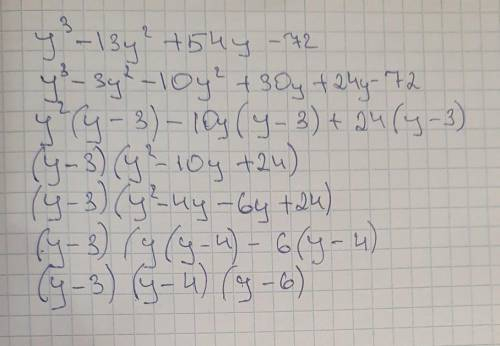 y³ - 13y² + 54y - 72
y³ - 3y² - 10y² + 30y + 24y - 72
y² (y - 3) - 10y (y - 3) + 24 (y - 3)
(y - 3) (y² - 10y + 24)
(y - 3) (y² - 4y - 6y + 24)
(y - 3) (y (y - 4) - 6 (y - 4)
(y - 3) (y - 4) (y - 6)